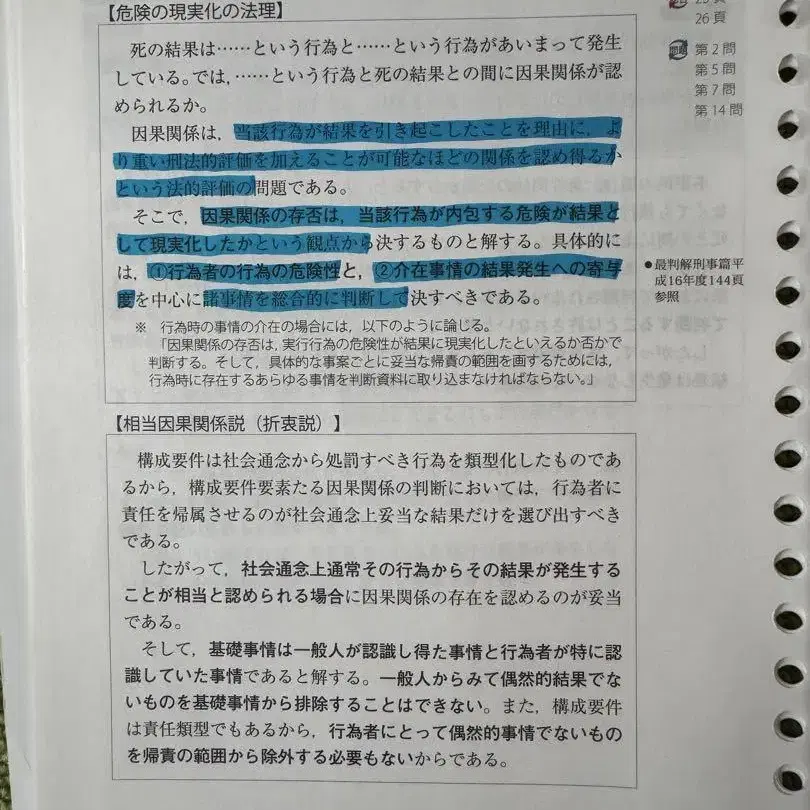 【危険の現実化の法理】
死の結果は……という行為と……という行為があいまって発生
している。では，……という行為と死の結果との間に因果関係が認
められるか。
因果関係は，当該行為が結果を引き起こしたことを理由に，よ
り重い刑法的評価を加えることが可能なほどの関係を認め得るか
という法的評価の問題である。
そこで，因果関係の存否は，当該行為が内包する危険が結果と
して現実化したかという観点から決するものと解する。具体的に
は，①行為者の行為の危険性と，②介在事情の結果発生への寄与
度を中心に諸事情を総合的に判断して決すべきである。
※ 行為時の事情の介在の場合には，以下のように論じる。
「因果関係の存否は，実行行為の危険性が結果に現実化したといえるか否かで
判断する。そして，具体的な事案ごとに妥当な帰責の範囲を画するためには，
行為時に存在するあらゆる事情を判断資料に取り込まなければならない。」
【相当因果関係説（折衷説）】
構成要件は社会通念から処罰すべき行為を類型化したものであ
るから，構成要件要素たる因果関係の判断においては，行為者に
責任を帰属させるのが社会通念上妥当な結果だけを選び出すべき
である。
したがって，社会通念上通常その行為からその結果が発生する
ことが相当と認められる場合に因果関係の存在を認めるのが妥当
である。
そして，基礎事情は一般人が認識し得た事情と行為者が特に認
識していた事情であると解する。一般人からみて偶然的結果でな
いものを基礎事情から排除することはできない。また，構成要件
は責任類型でもあるから，行為者にとって偶然的事情でないもの
を帰責の範囲から除外する必要もないからである。
26頁
第2問
第5問
第7問
第14問
●最判解刑事篇平
成16年度144頁
参照